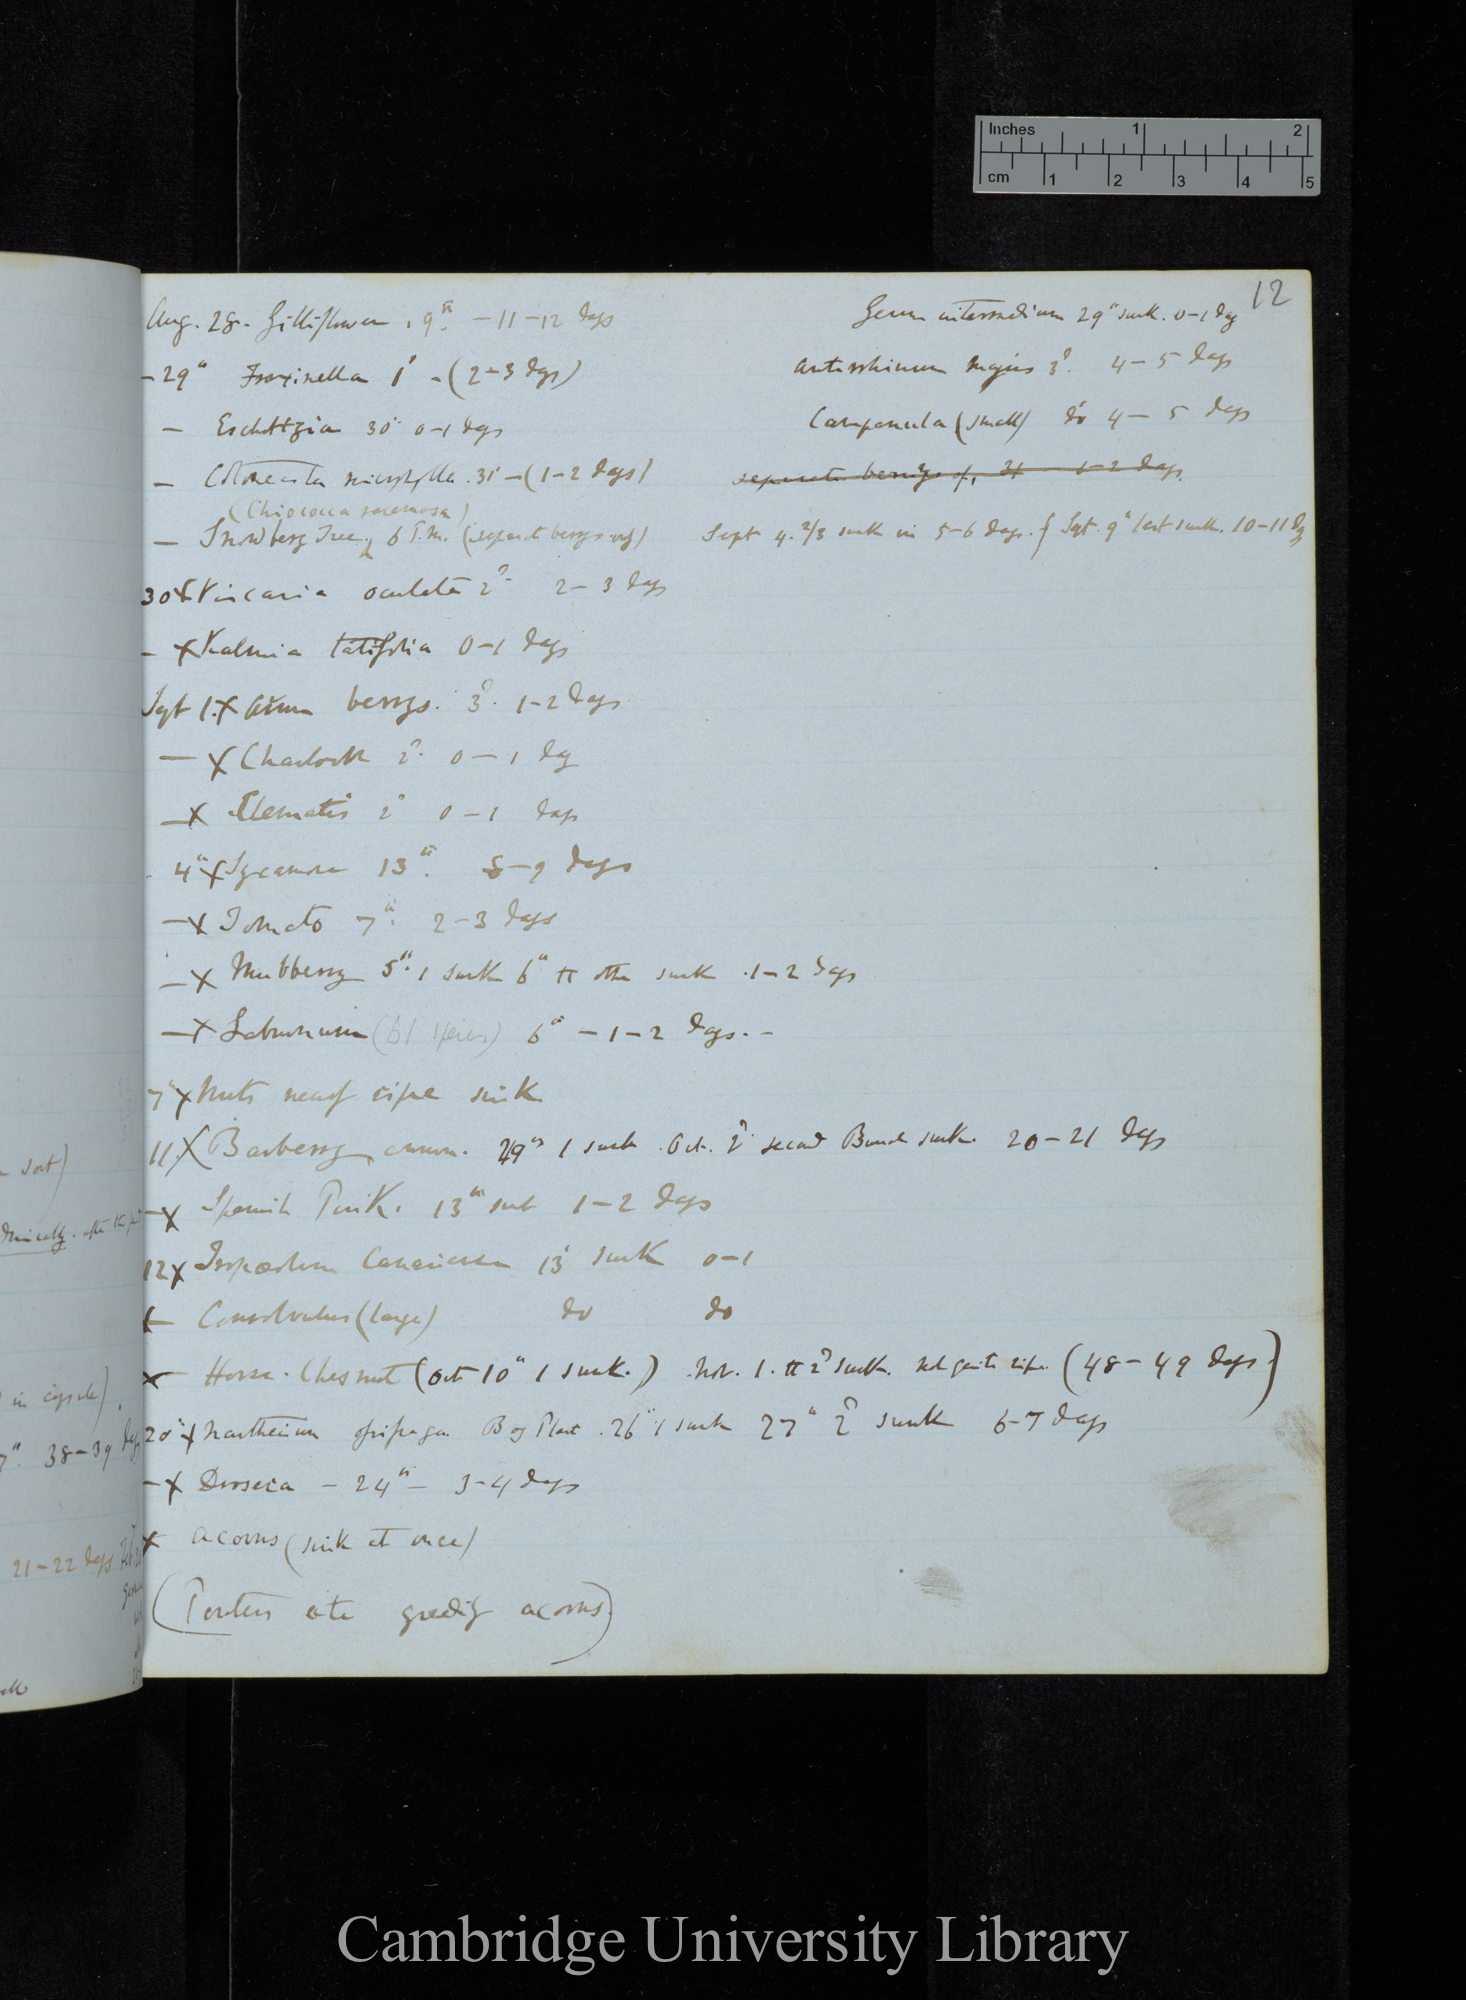 Inches 1 2
cm 1 2 3 4 5
12
Aug. 28. Gilliflower . 9th. - 11-12 days
Geum intermedium 29th sunk. 0-1 day
- 29th Fraxinella 1st - (2-3 days)
Antirrhinum majus 3d. 4-5 days
- Eschsltzia 30th 0-1 days
Campanula (small) do 4-5 days
- Cotoneaster microphylla. 31st - (1-2 days)
separate berrys 31 - 1-2 days
(Chiococca racemosa)
- Snowberry Tree, 6 (separate berrys only)
Sept 4. 2/3 sunk in 5-6 days. & Sept. 9th last sunk. 10-11 dy
30 X Viscaria oculata 2d. 2-3 days
- X Kalmia latifolia 0-1 days
Sept 1. X Arum berrys. 3d. 1-2 days
- X Charlock 2d. 0-1 day
- X Clematis 2d 0-1 days
4th X Sycamore 13th. 8-9 days
- X Tomato 7th. 2-3 days
- X Mulberry 5th. 1 sunk 6th the other sunk . 1-2 days
- X Laburnum 6th - 1-2 days. -
7th X Nuts nearly ripe sink
11. X Barberry, common. 29th 1 sunk. Oct. 2d. second Bunch sunk. 20-21 days
- X Spanish Pink. 13th sunk 1-2 days
12 X Tropæolum Canariense 13th sunk 0-1
X - Convolvulus (large) do do
X - Horse-Chesnut (Oct 10th 1 sunk.) Nov. 1. the 2d sunk. not quite ripe. (48-49 days)
20th X Narthecium ossifraga Bog Plant. 26th 1 sunk 27th 2d sunk 6-7 days
- X Drosera - 24th - 3-4 days
X Acorns (sink at once)
(Pouters ate greedily acorns)
sort)
after the
in capsule).
7th. 38-39 days
21-22 days
Cambridge University Library